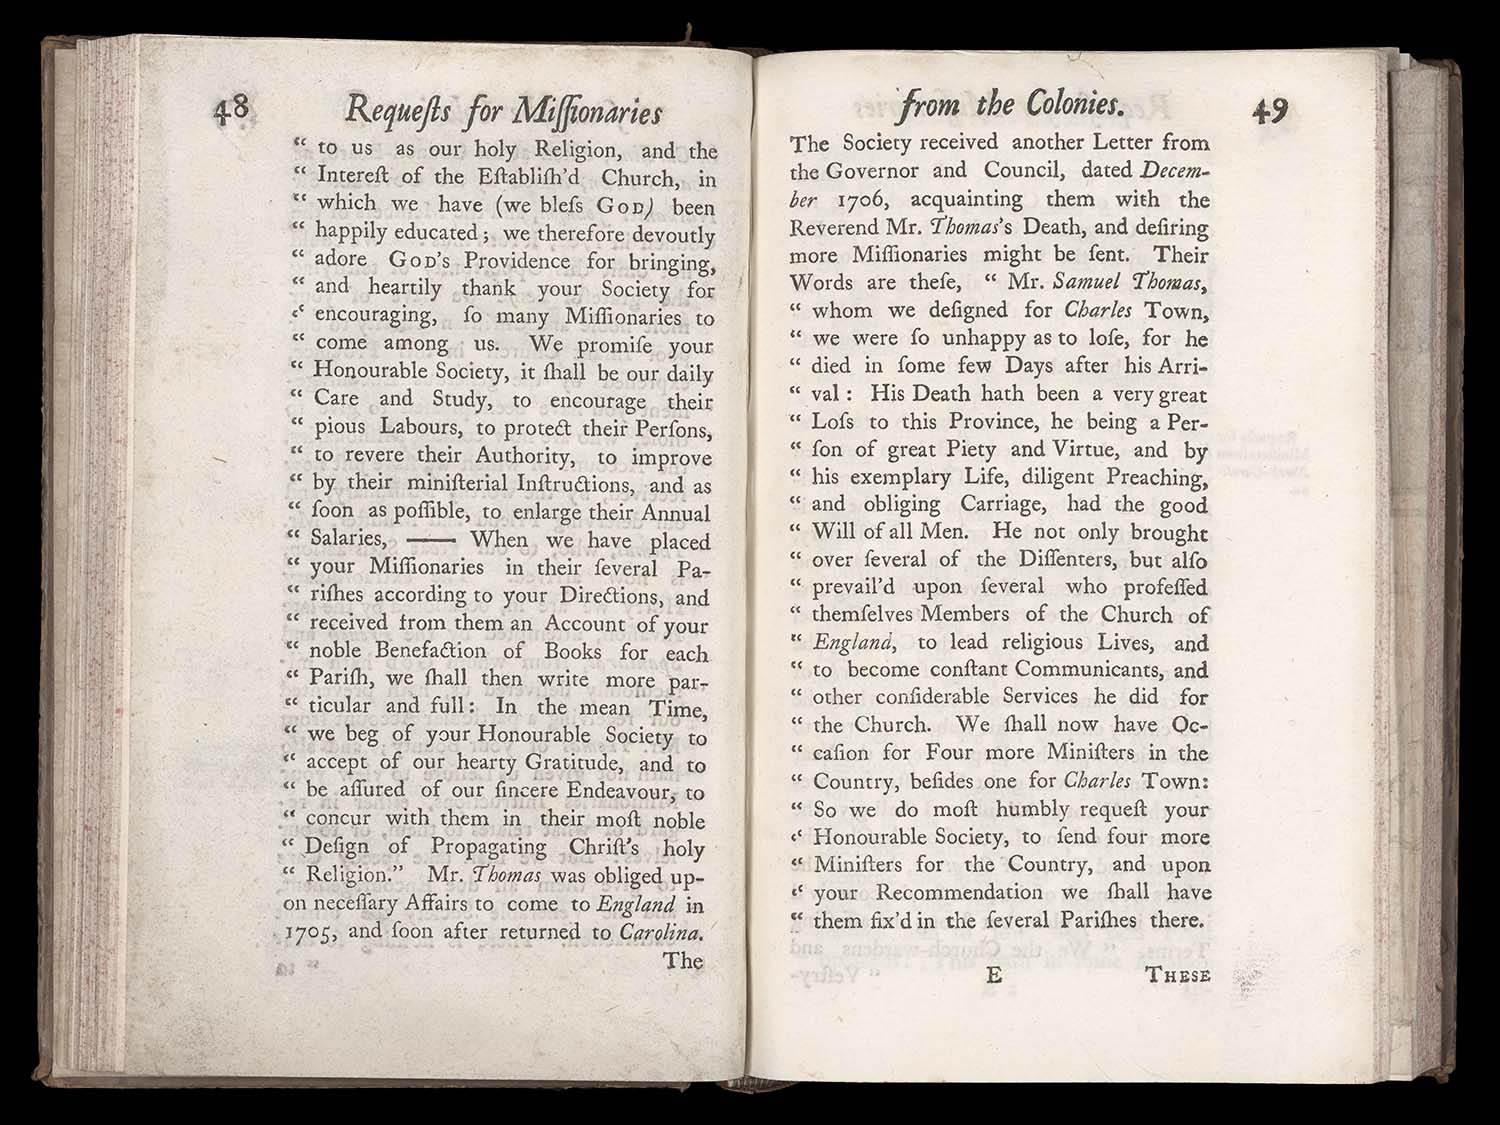 48 Requeſts for Miſſionaries
“ to us as our holy Religion, and the
“ Intereſt of the Eſtabliſh'd Church, in
“ which we have (we bleſs GOD) been
“ happily educated; we therefore devoutly
“ adore GOD's Providence for bringing,
“ and heartily thank your Society for
“ encouraging, ſo many Miſſionaries to
“ come among us. We promiſe your
“ Honourable Society, it ſhall be our daily
“ Care and Study, to encourage their
“ pious Labours, to protect their Perſons,
“ to revere their Authority, to improve
“ by their miniſterial Inſtructions, and as
“ ſoon as poſſible, to enlarge their Annual
“ Salaries, —— When we have placed
“ your Miſſionaries in their ſeveral Pa-
“ riſhes according to your Directions, and
“ received from them an Account of your
“ noble Benefaction of Books for each
“ Pariſh, we ſhall then write more par-
“ ticular and full: In the mean Time,
“ we beg of your Honourable Society to
“ accept of our hearty Gratitude, and to
“ be aſſured of our ſincere Endeavour, to
“ concur with them in their moſt noble
“ Deſign of Propagating Chriſt's holy
“ Religion.” Mr. Thomas was obliged up-
on neceſſary Affairs to come to England in
1705, and ſoon after returned to Carolina.
The
from the Colonies. 49
The Society received another Letter from
the Governor and Council, dated Decem-
ber 1706, acquainting them with the
Reverend Mr. Thomas's Death, and deſiring
more Miſſionaries might be ſent. Their
Words are theſe, “ Mr. Samuel Thomas,
“ whom we deſigned for Charles Town,
“ we were ſo unhappy as to loſe, for he
“ died in ſome few Days after his Arri-
“ val : His Death hath been a very great
“ Loſs to this Province, he being a Per-
“ ſon of great Piety and Virtue, and by
“ his exemplary Life, diligent Preaching,
“ and obliging Carriage, had the good
“ Will of all Men. He not only brought
“ over ſeveral of the Diſſenters, but alſo
“ prevail'd upon ſeveral who profeſſed
“ themſelves Members of the Church of
“ England, to lead religious Lives, and
“ to become conſtant Communicants, and
“ other conſiderable Services he did for
“ the Church. We ſhall now have Oc-
“ caſion for Four more Miniſters in the
“ Country, beſides one for Charles Town:
“ So we do moſt humbly requeſt your
“ Honourable Society, to ſend four more
“ Miniſters for the Country, and upon
“ your Recommendation we ſhall have
“ them fix'd in the ſeveral Pariſhes there.
E THESE